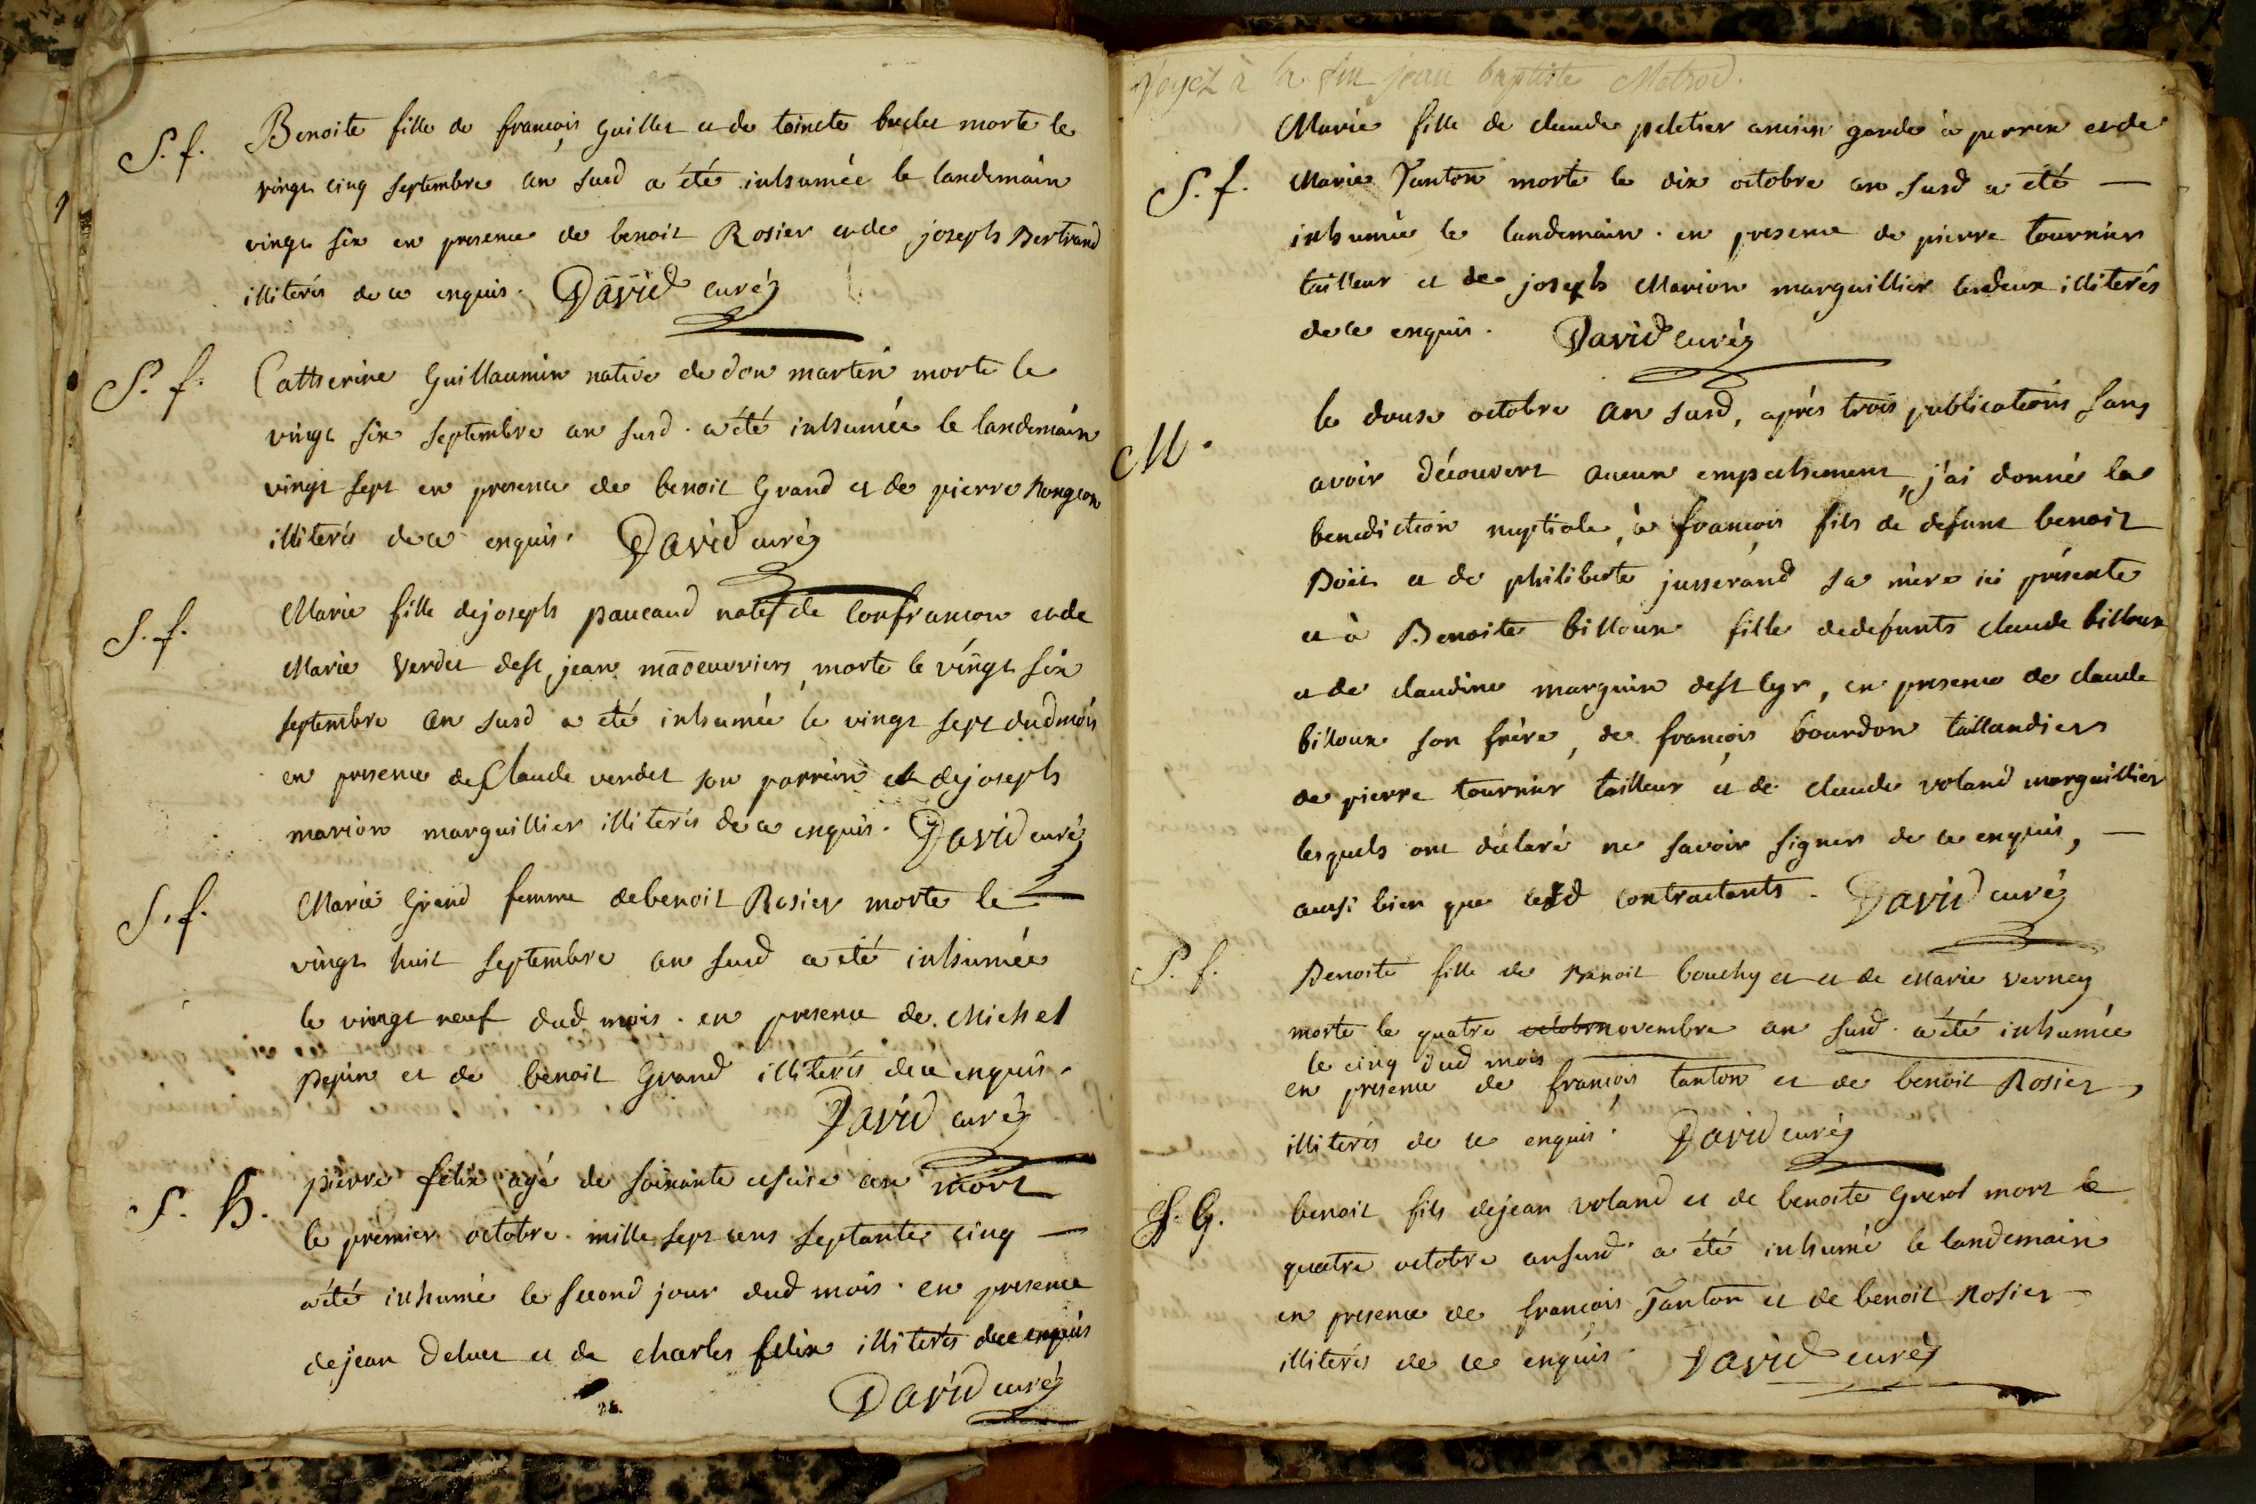 S. f. Benoite fille de francois Guillet et de toinete morte le
vingt cinq septembre an susd a été inhumée le landemain
vingt six en presence de benoit Rosier et de joseph Bertrand
illiterés de ce enquis. David curéz
S. f. Catherine Guillaumin native de don martin morte le
vingt six septembre an susd. a été inhumée le landemain
vingt sept en presence de benoit Grand et de pierre
illiterés de ce enquis. David curéz
S. f. Marie fille de joseph paucaud natif de Confrancon et de
Marie Verdet de st jean manoeuvriers, morte le vingt six
septembre an susd a été inhumée le vingt sept dud mois
en presence de Claude verdet son parrein et de joseph
marion marguillier illiterés de ce enquis. David curéz
S. f. Marie Grand femme de benoit Rosier morte le
vingt huit septembre an susd a été inhumée
le vingt neuf dud mois. en presence de Michel
pepin et de benoit Grand illiterés de ce enquis.
David curéz
S. H. pierre felix agé de soixante et seize an mort
le premier octobre mille sept cens septante cinq —
a été inhumé le second jour dud mois. en presence
de jean et de charles felix illiterés de ce enquis
David curéz
Voyez à la fin jean baptiste Metrod.
Marie fille de claude peletier ancien garde à perrex et de
S. f. Marie Tanton morte le dix octobre an susd a été —
inhumée le landemain. en presence de pierre tournier
tailleur et de joseph Marion marguillier les deux illiterés
de ce enquis. David curéz
le douse octobre an susd, après trois publications sans
M. avoir découvert aucun empechement, j'ai donné la
benediction nuptiale, à francois fils de defunt benoit
et de philiberte jusserand sa mère ici présente
et à Benoite billoux fille de defunts claude billoux
et de claudine marguin de st Cyr, en presence de claude
billoux son frère, de francois bourdon taillandier
de pierre tournier tailleur et de claude voland marguillier
lesquels ont déclaré ne savoir signer de ce enquis, —
aussi bien que lesd contractants. David curéz
S. f. Benoite fille de Benoit bouchy et et de Marie verney
morte le quatre octobr novembre an susd. a été inhumée
le cinq dud mois
en presence de francois tanton et de benoit Rosier,
illiterés de ce enquis. David curéz
S. G. benoit, fils de jean voland et de benoite mort le
quatre octobre an susd a été inhumé le landemain
en presence de francois Tanton et de benoit Rosier —
illiterés de ce enquis. David curéz